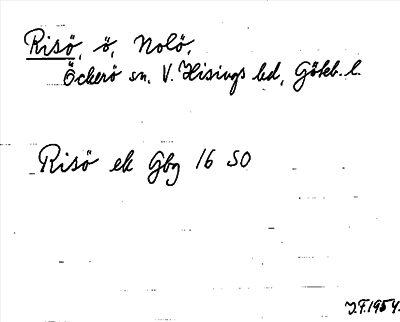 Risö, ö, Nolö,
Öckerö sn. V. Hisings hd, Göteb. l.
Risö ek Gbg 16 SO
J.F. 1954.